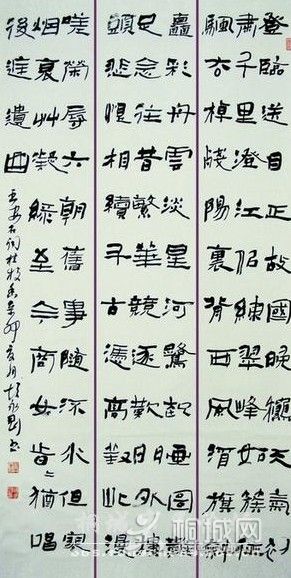 登臨送目正故國晚秋天氣初
肅千里澄江似練翠峰如簇征
颿去棹殘陽裏背西風酒旗斜
矗彩舟雲淡星河鷺起畫圖難
足念往昔繁華競逐歎門外樓
頭悲恨相續千古憑高對此謾
嗟榮辱六朝舊事隨流水但寒
烟衰艸凝綠至今商女時時猶唱
後庭遺曲
王安石詞桂枝香辛卯夏月
桐城网